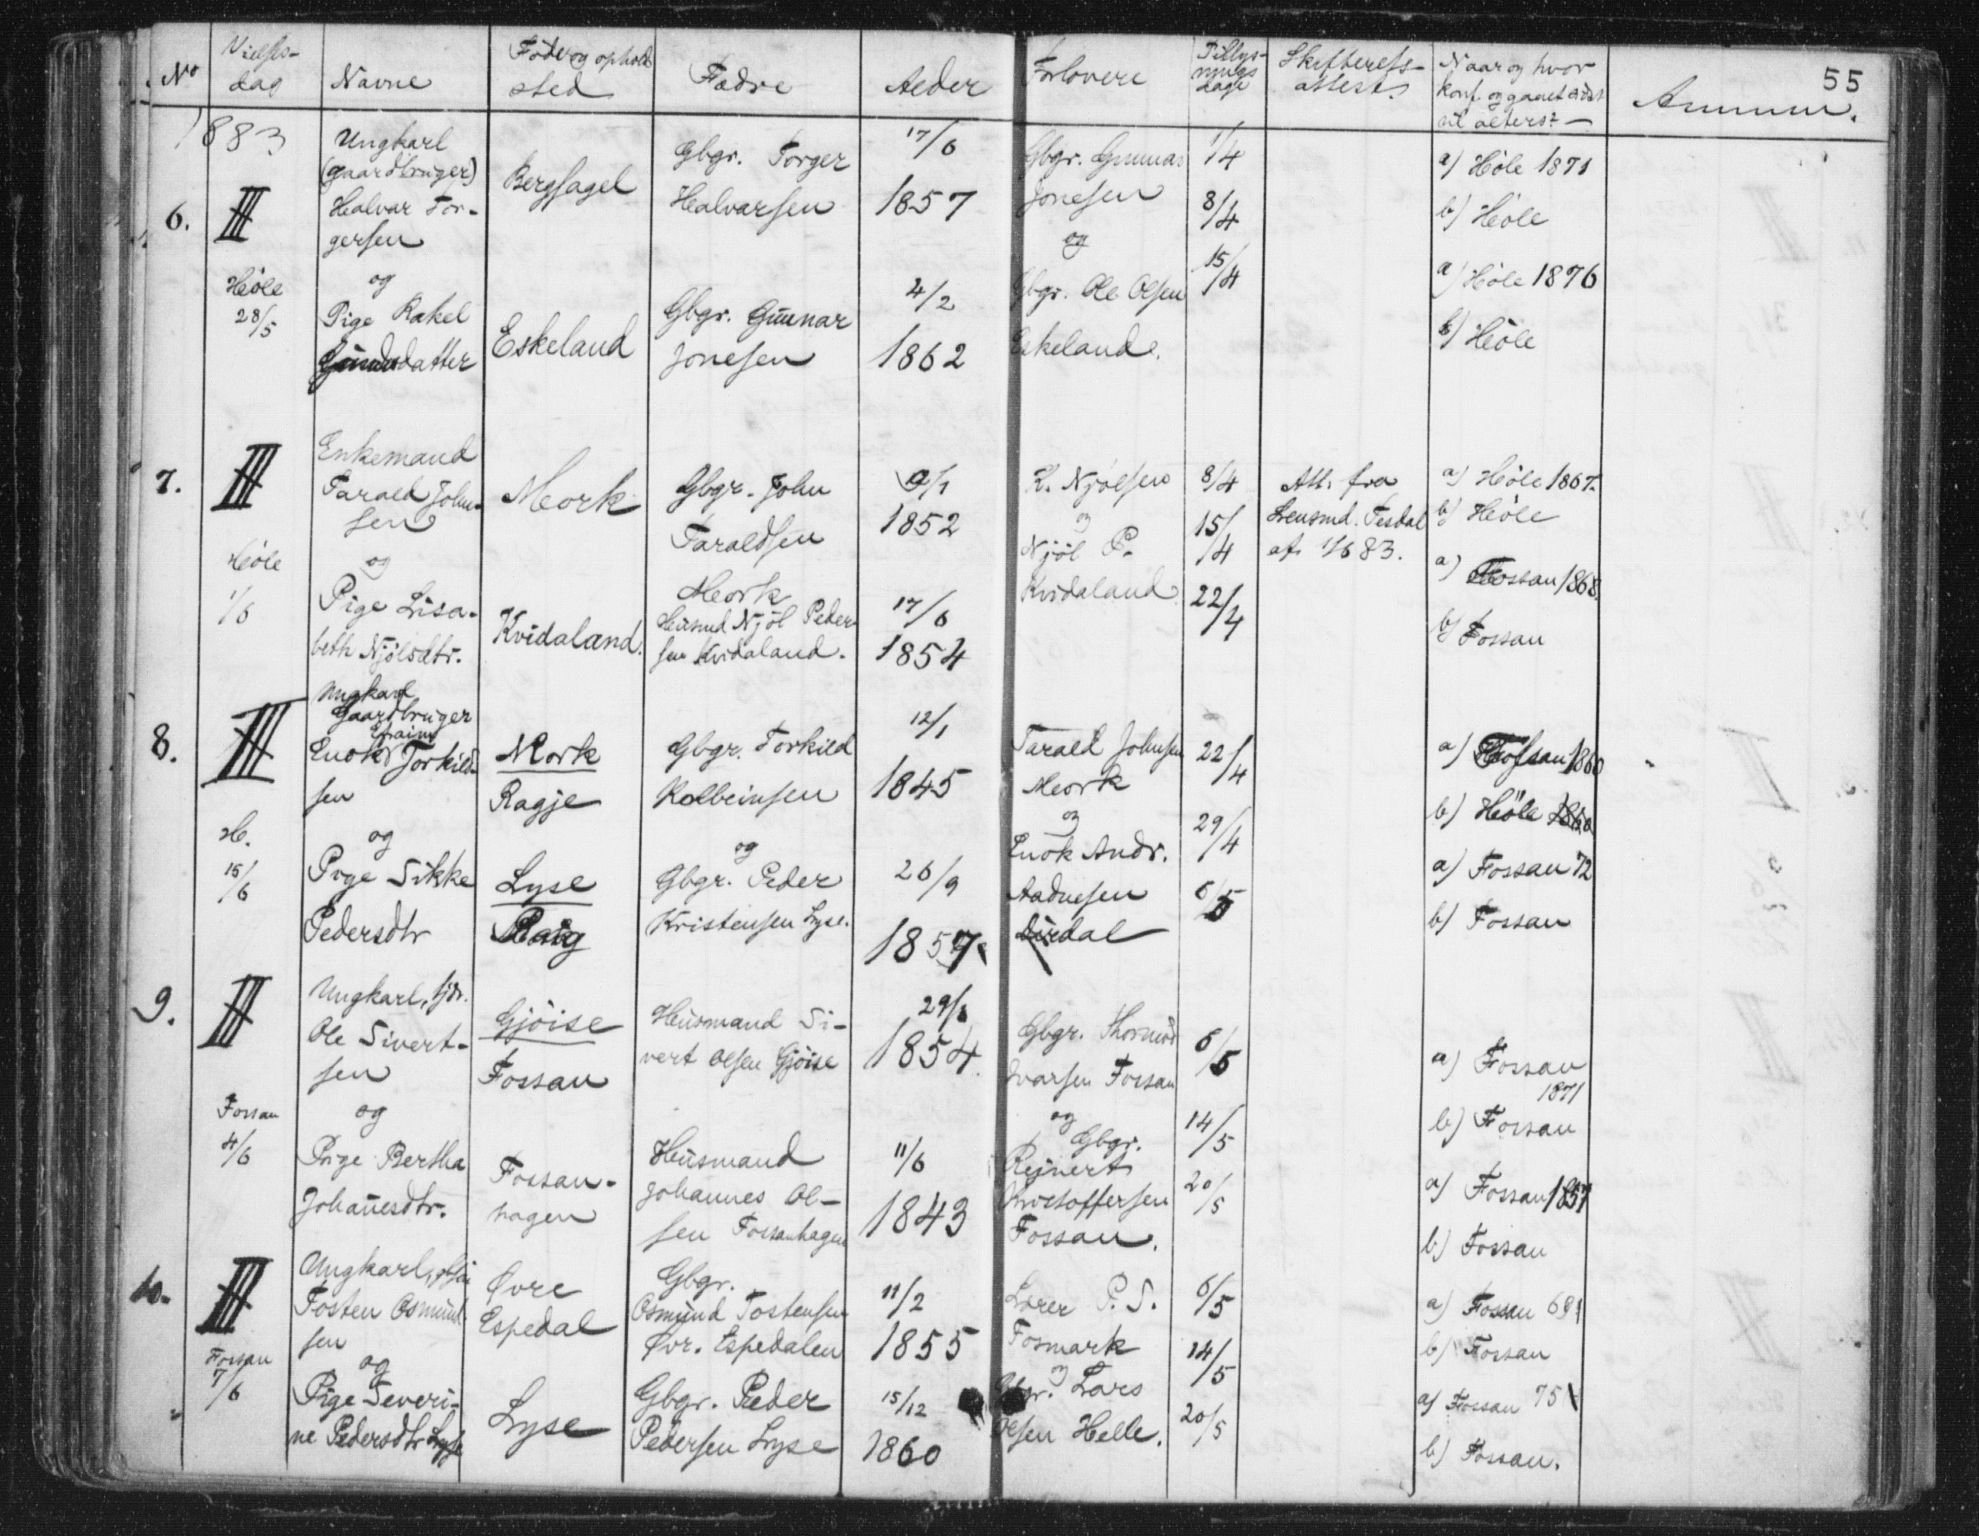 55
No
Vielses-
dag
Navne
Føde og ophold
sted
Fædre
Alder
Forlovere
Tillys-
nings
dage
Skifterets-
attest.
Naar og hvor
konf. og gaaet sidst
til alters? —
Anmm.
1883
6.
III
Høle
28/5
Ungkarl
(gaardbruger)
Halvar Tor-
gersen
og
Pige Rakel
datter
Bergsagel
Eskeland
Gbgr. Torger
Halvarsen
Gbgr. Gunnar
Jonesen
17/6
1857
4/2
1862
Gbgr. Gunnar
Jonesen
og
Gbgr. Ole Olsen
Eskeland.
1/4
8/4
15/4
a) Høle 1871
b) Høle
a) Høle 1876
b) Høle
7.
III
Høle
1/6
Enkemand
Tarald John-
sen
og
Pige Lisa-
beth Njølsdtr.
Meork
Kvidaland.
Gbgr. John
Taraldsen
Meork
Husmd Njöl Peder-
sen Kvidaland.
9/1
1852
17/6
1854
K. Njölsen
og
Njöl P.
Kvidaland
8/4
15/4
22/4
Att. fra
Lensmd. Tesdal
af 1/6 83.
a) Høle 1867.
b) Høle
a) Fossan 1868.
b) Fossan
8.
III
H.
15/6
Ungkarl
Gaardbruger
Efraim
Enok Torkild-
sen
og
Pige Sikke
Pedersdtr
Meork
Ragje
Lyse
Gbgr. Torkild
Kolbeinsen
og
Gbgr. Peder
Kristensen Lyse.
12/1
1845
26/9
1857
Tarald Johnsen
Meork
og
Enok Andr.
Aadnesen
Dirdal
22/4
29/4
6/5
a) Fossan 1860
b) Høle
a) Fossan 72
b) Fossan
9.
III
Fossan
4/6
Ungkarl, tjr.
Ole Sivert-
sen
og
Pige Bertha
Johanesdtr.
Gjöise
Fossan
Fossan-
hagen
Husmand Si-
vert Olsen Gjöise
Husmand
Johannes Ol-
sen Fossanhagen
29/8
1854.
11/6
1843
Gbgr. Thormod
Ivarsen Fossan
og
Gbgr.
Rejnert
Kristoffersen
Fossan.
6/5
14/5
20/5
a) Fossan
1871
b) Fossan
a) Fossan 1857
b) Fossan
10.
III
Fossan
7/6
Ungkarl,
Tosten Osmund-
sen
og
Pige Severi-
ne Pedersdtr Lyse
Øvre
Espedal
Lyse
Gbgr.
Osmund Tostensen
Øvr. Espedalen
Gbgr. Peder
Pedersen Lyse
11/2
1855
15/12
1860
Lærer P. S.
Fosmark
og
Gbgr. Lars
Olsen Helle.
6/5
14/5
20/5
a) Fossan 69
b) Fossan
a) Fossan 75
b) Fossan.